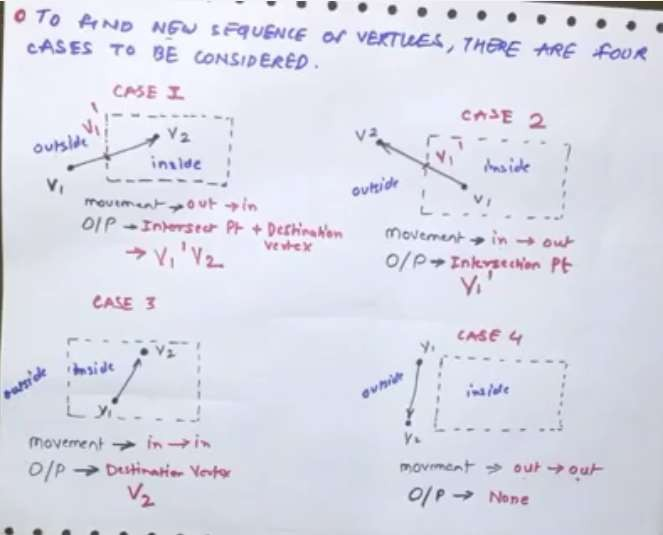 TO FIND NEW SEQUENCE OF VERTICES, THERE ARE FOUR
CASES TO BE CONSIDERED.
CASE I
V1'
V2
outside
inside
V1
movement → out → in
O/P → Intersect Pt + Destination
vertex
→ V1' V2
CASE 2
V2
V1'
inside
outside
V1
movement → in → out
O/P → Intersection Pt
V1'
CASE 3
V2
outside
inside
V1
movement → in → in
O/P → Destination Vertex
V2
CASE 4
V1
outside
inside
V2
movment → out → out
O/P → None